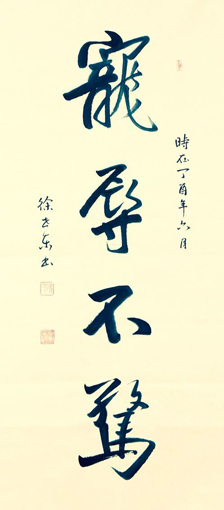 寵辱不驚
時在丁酉年六月
徐世東书